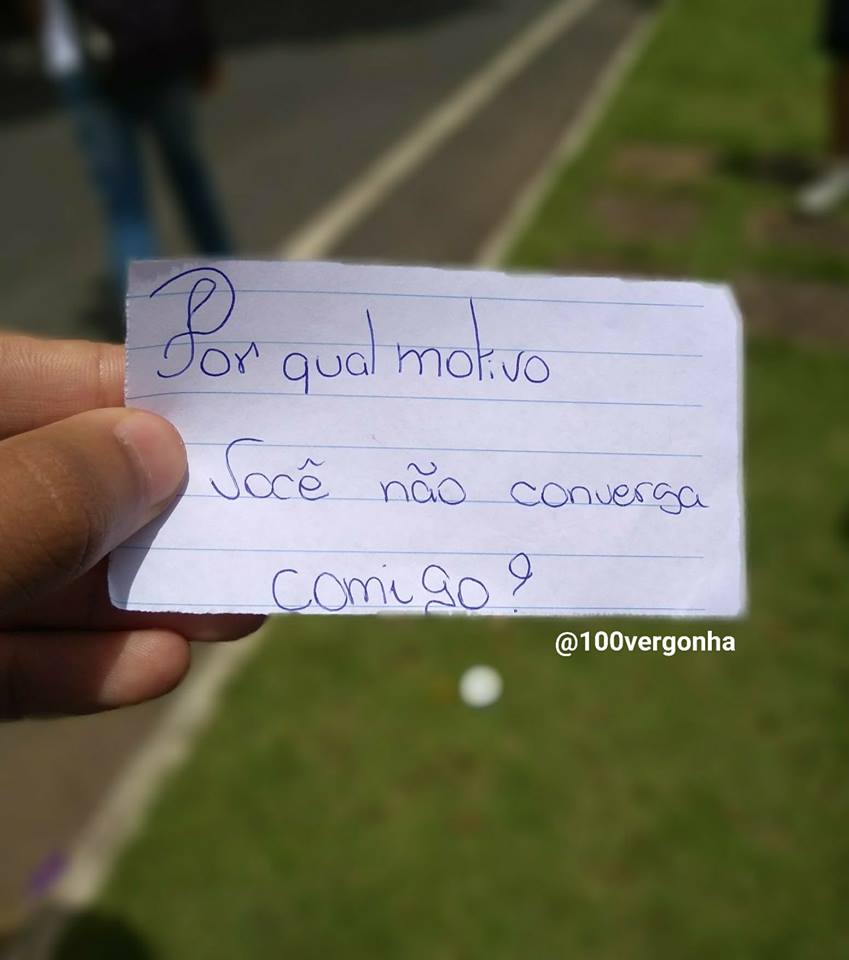 Por qual motivo
Você não conversa
comigo?
@100vergonha